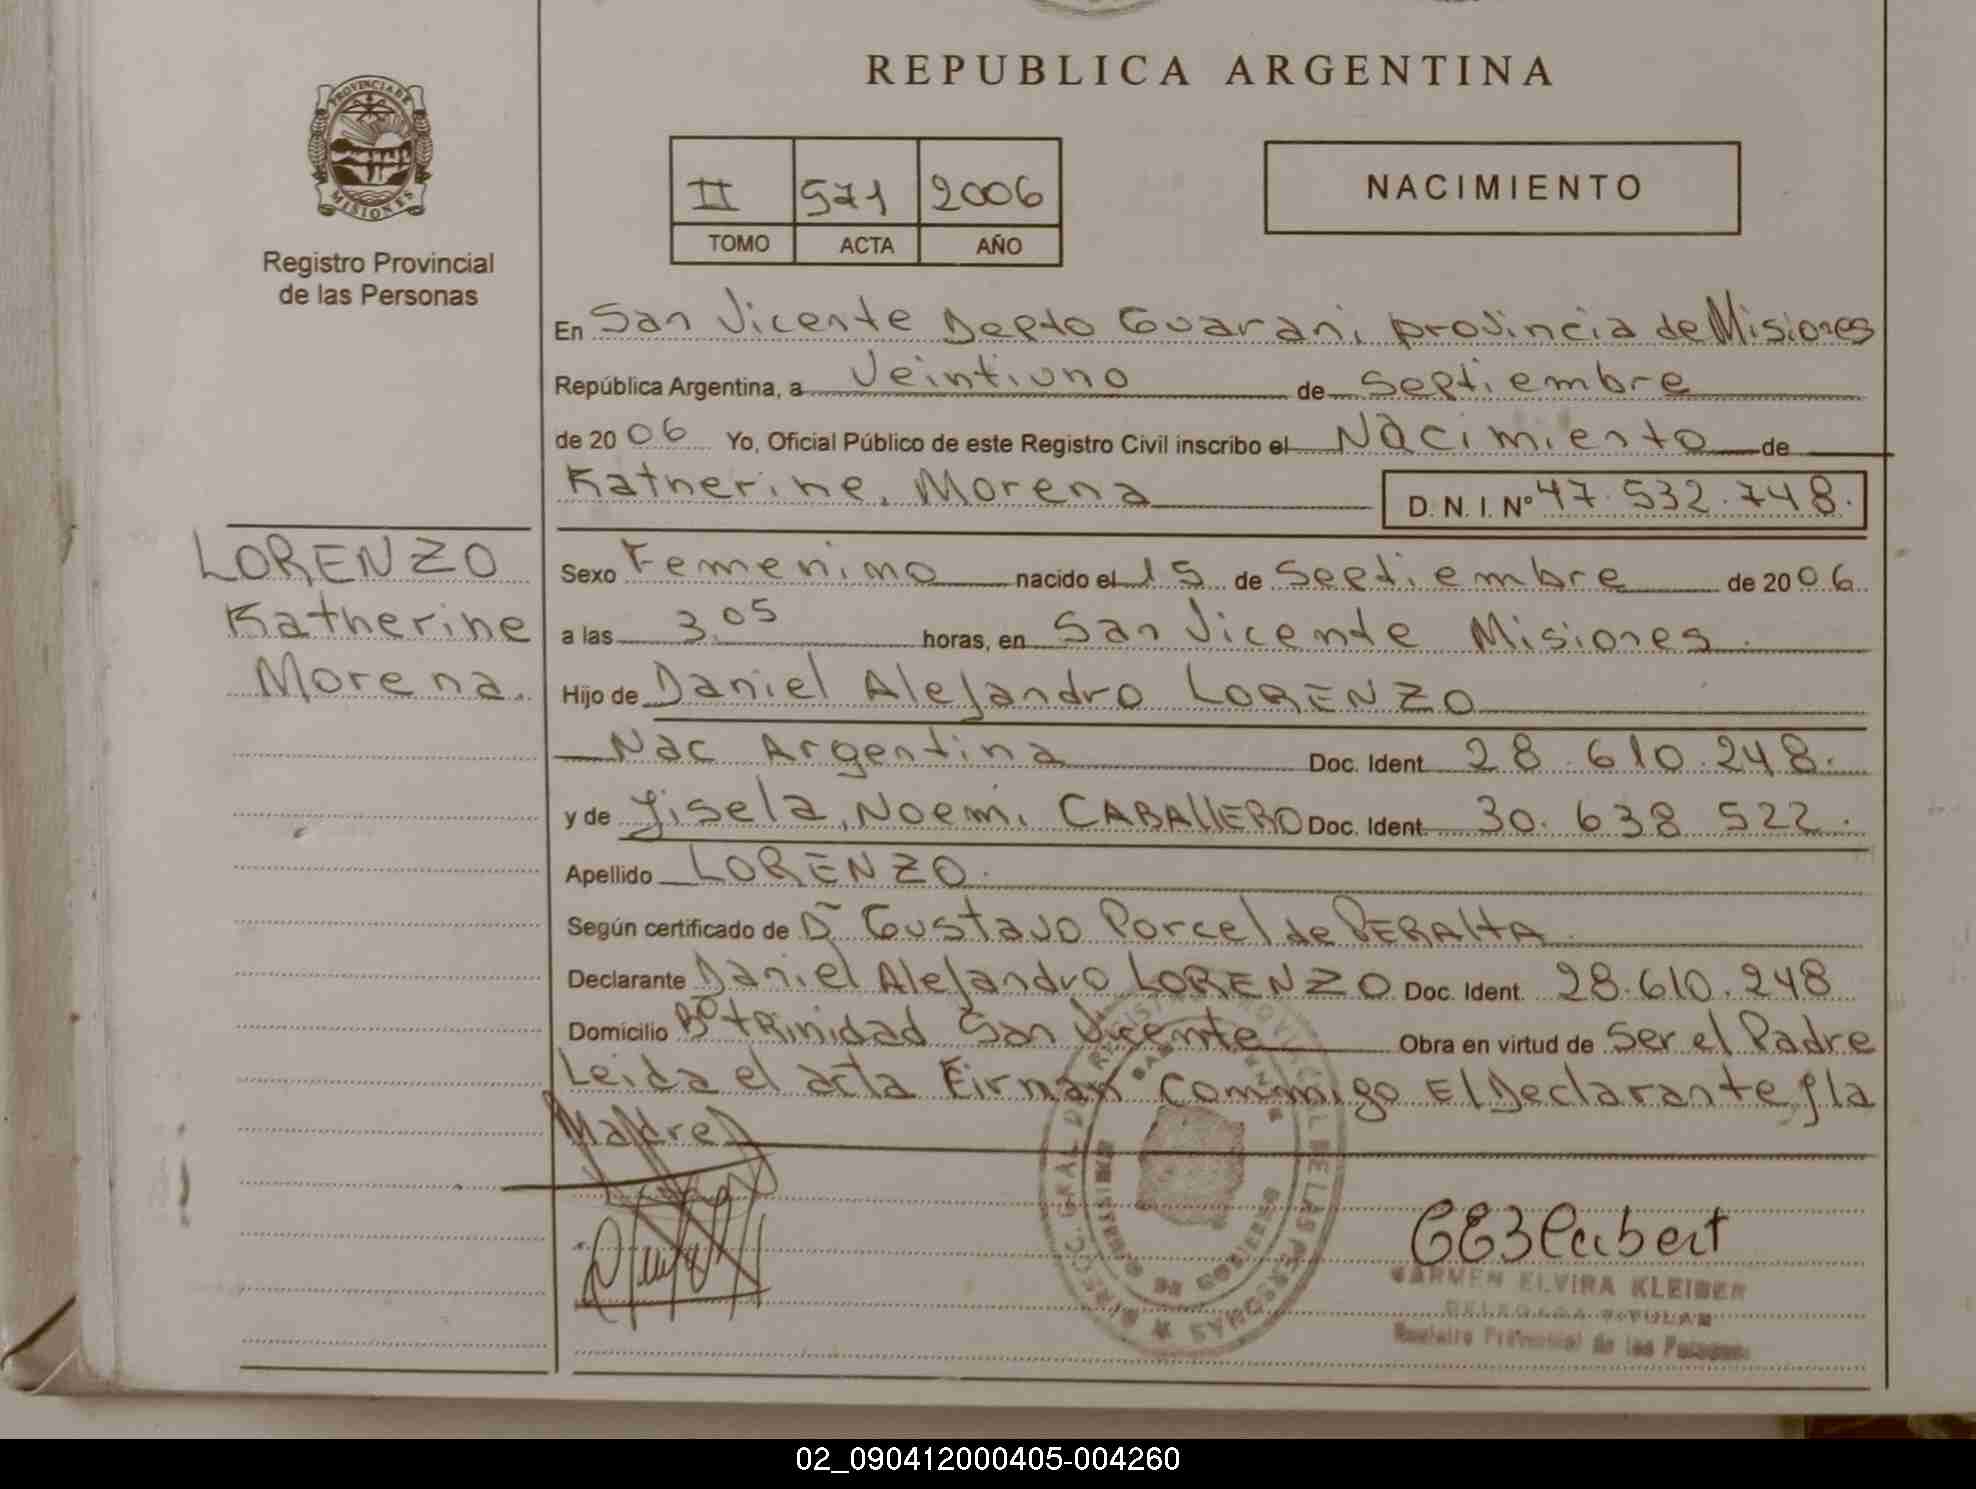 REPUBLICA ARGENTINA
PROVINCIA DE
MISIONES
Registro Provincial
de las Personas
II 571 2006
TOMO ACTA AÑO
NACIMIENTO
En San Vicente Depto Guarani provincia de Misiones
República Argentina, a Veintiuno de Septiembre
de 2006 Yo, Oficial Público de este Registro Civil inscribo el Nacimiento de
Katherine, Morena D. N. I. Nº 47.532.748.
LORENZO
Katherine
Morena.
Sexo Femenino nacido el 15 de Septiembre de 2006
a las 3.05 horas, en San Vicente Misiones.
Hijo de Daniel Alejandro LORENZO
Nac Argentina Doc. Ident. 28.610.248.
y de Gisela, Noemi CABALLERO Doc. Ident. 30.638.522.
Apellido LORENZO.
Según certificado de Dr Gustavo Porcel de PERALTA.
Declarante Daniel Alejandro LORENZO Doc. Ident. 28.610.248
Domicilio Bº trinidad San Vicente Obra en virtud de Ser el Padre
Leida el acta Firman Commigo El Declarante y la
Madre
CARMEN ELVIRA KLEIBER
DELEGADA TITULAR
Registro Provincial de las Personas
02_090412000405-004260